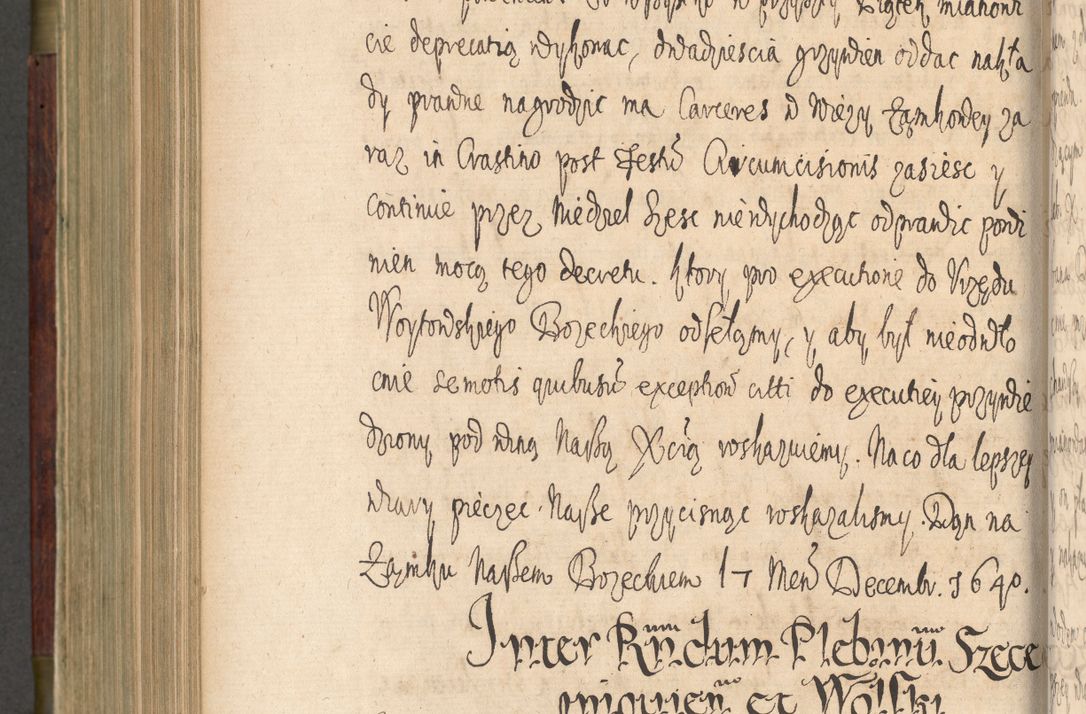 cie deprecatią wykonac, dwadziescia grzywien oddac nakła
dy prawne nagrodzic ma Carceres w Wieży Zamkowey za
raz in Crastino post Festũ Circumcisionis zasiesc y
continue przez Niedziel szesc niewychodząc odprawic powi
nien mocą tego decretu. ktory pro executione do Urzędu
Woytowskiego Bozeckiego odsełamy, y aby był nieodwło
cnie semotis quibusuis exceptioñ citti do executiey przywie
dziony pod winą Naszą Xcią roskazuiemy. Na co dla lepszey
wiary pieczęc Nasze przycisnąc roskazalismy. Dan na
Zamku Naszem Bozeckiem 17 Men Decembr. 1640.
Inter Rnđum Plebanũ Szece
et Wolski